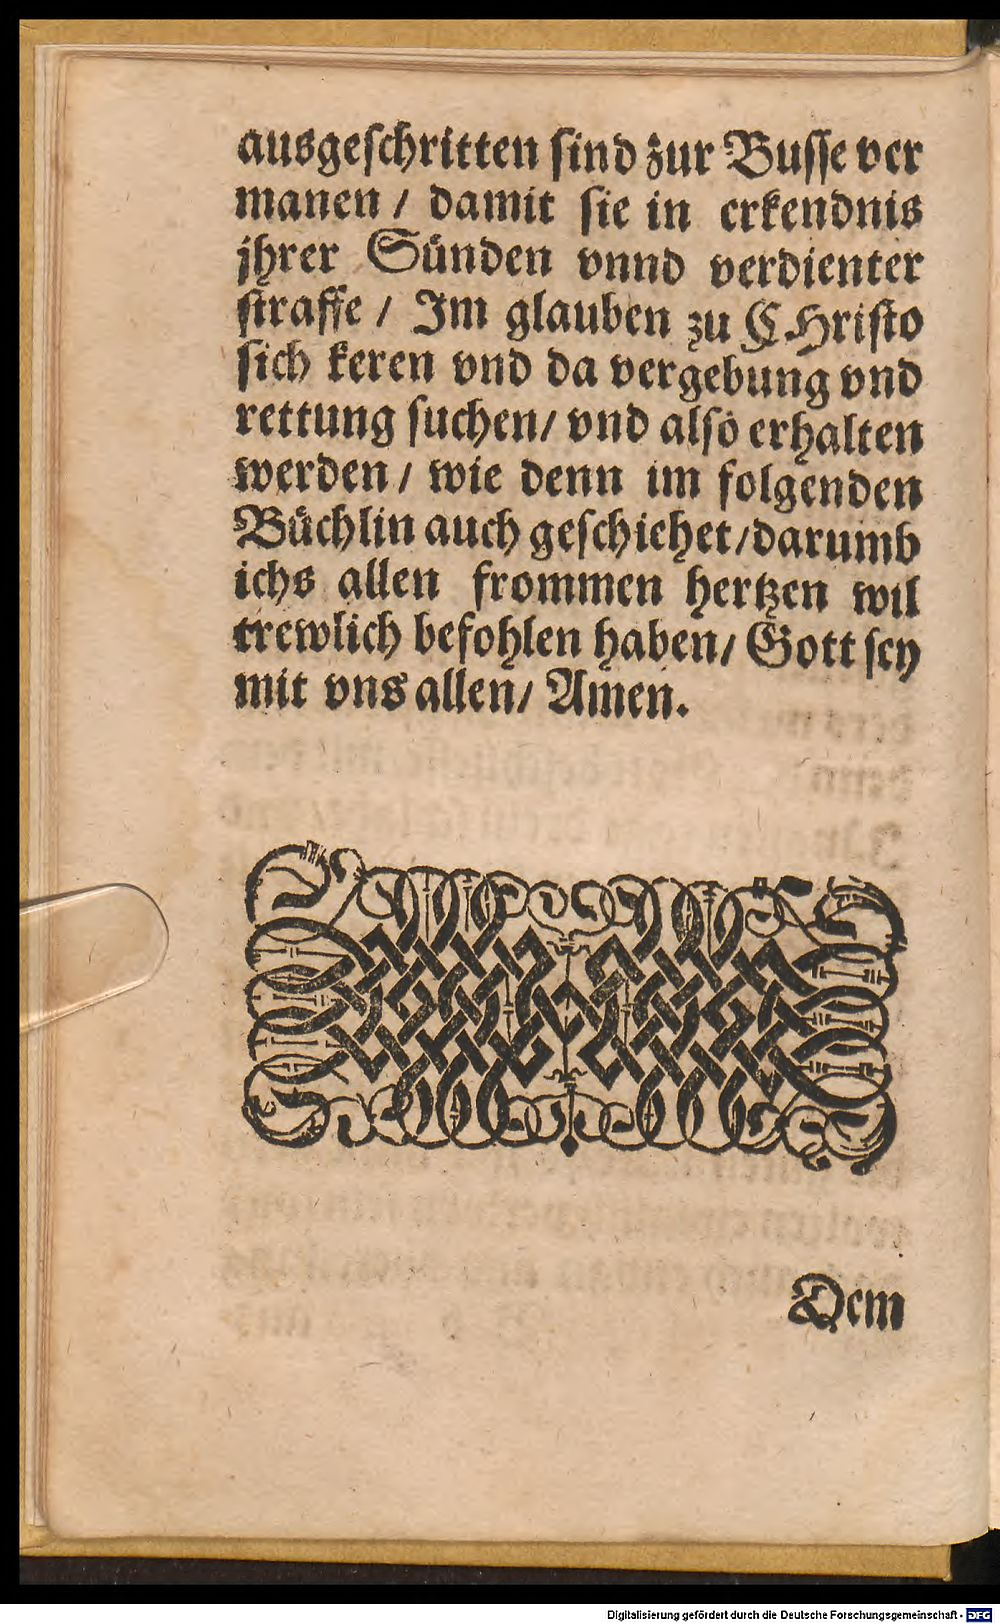 ausgeſchritten ſind zur Buſſe ver
manen / damit ſie in erkendnis
jhrer Sünden vnnd verdienter
ſtraffe / Im glauben zu CHriſto
ſich keren vnd da vergebung vnd
rettung ſuchen/ vnd alſo erhalten
werden / wie denn im folgenden
Büchlin auch geſchiehet/darumb
ichs allen frommen hertzen wil
trewlich befohlen haben/ Gott ſey
mit vns allen/ Amen.
Dem
Digitalisierung gefördert durch die Deutsche Forschungsgemeinschaft - DFG